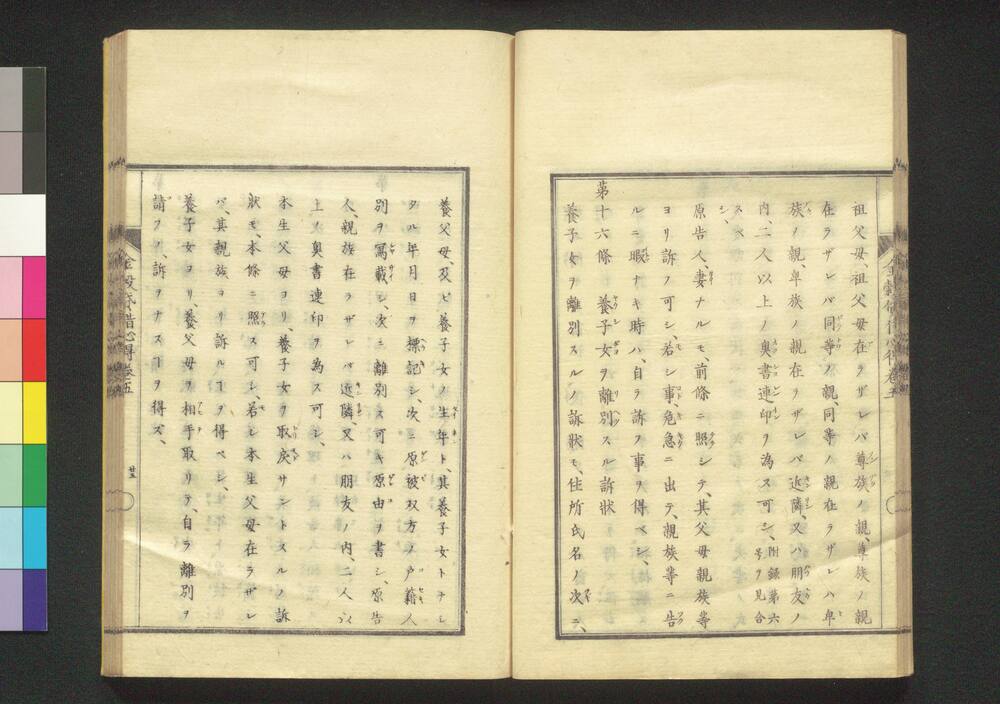 祖父母、祖父母在ラザレバ尊族ノ親、尊族ノ親
在ラザレバ同等ノ親、同等ノ親在ラザレハ卑
族ノ親、卑族ノ親在ラザレバ近隣、又ハ朋友ノ
内、二人以上ノ奥書連印ヲ為ス可シ、附録第六号ヲ見合
スベシ、
原告人、妻ナルモ、前條ニ照シテ、其父母親族等
ヨリ訴フ可シ、若シ事、危急ニ出テ、親族等ニ告
ルニ暇ナキ時ハ、自ラ訴フ事ヲ得ベシ、
第十六條　養子女ヲ離別スル訴狀
養子女ヲ離別スルノ訴狀モ、住所氏名ノ次ニ、
養父母、及ビ養子女ノ生年ト、其養子女トナシ
タル年月日ヲ標記シ、次ニ原被双方ノ戸籍人
別ヲ寫載シ、次ニ離別ス可キ原由ヲ書シ、原告
人、親族在ラザレバ近隣、又ハ朋友ノ内、二人以
上ノ奥書連印ヲ為ス可シ、
本生父母ヨリ、養子女ヲ取戻サントスルノ訴
狀モ、本條ニ照ス可シ、若シ本生父母在ラザレ
バ、其親族ヨリ訴ルヿヲ得ベシ、
養子女ヨリ、養父母ヲ相手取リテ、自ラ離別ヲ
請フノ、訴ヲナスヿヲ得ズ、
金穀貸借心得卷五
廿五